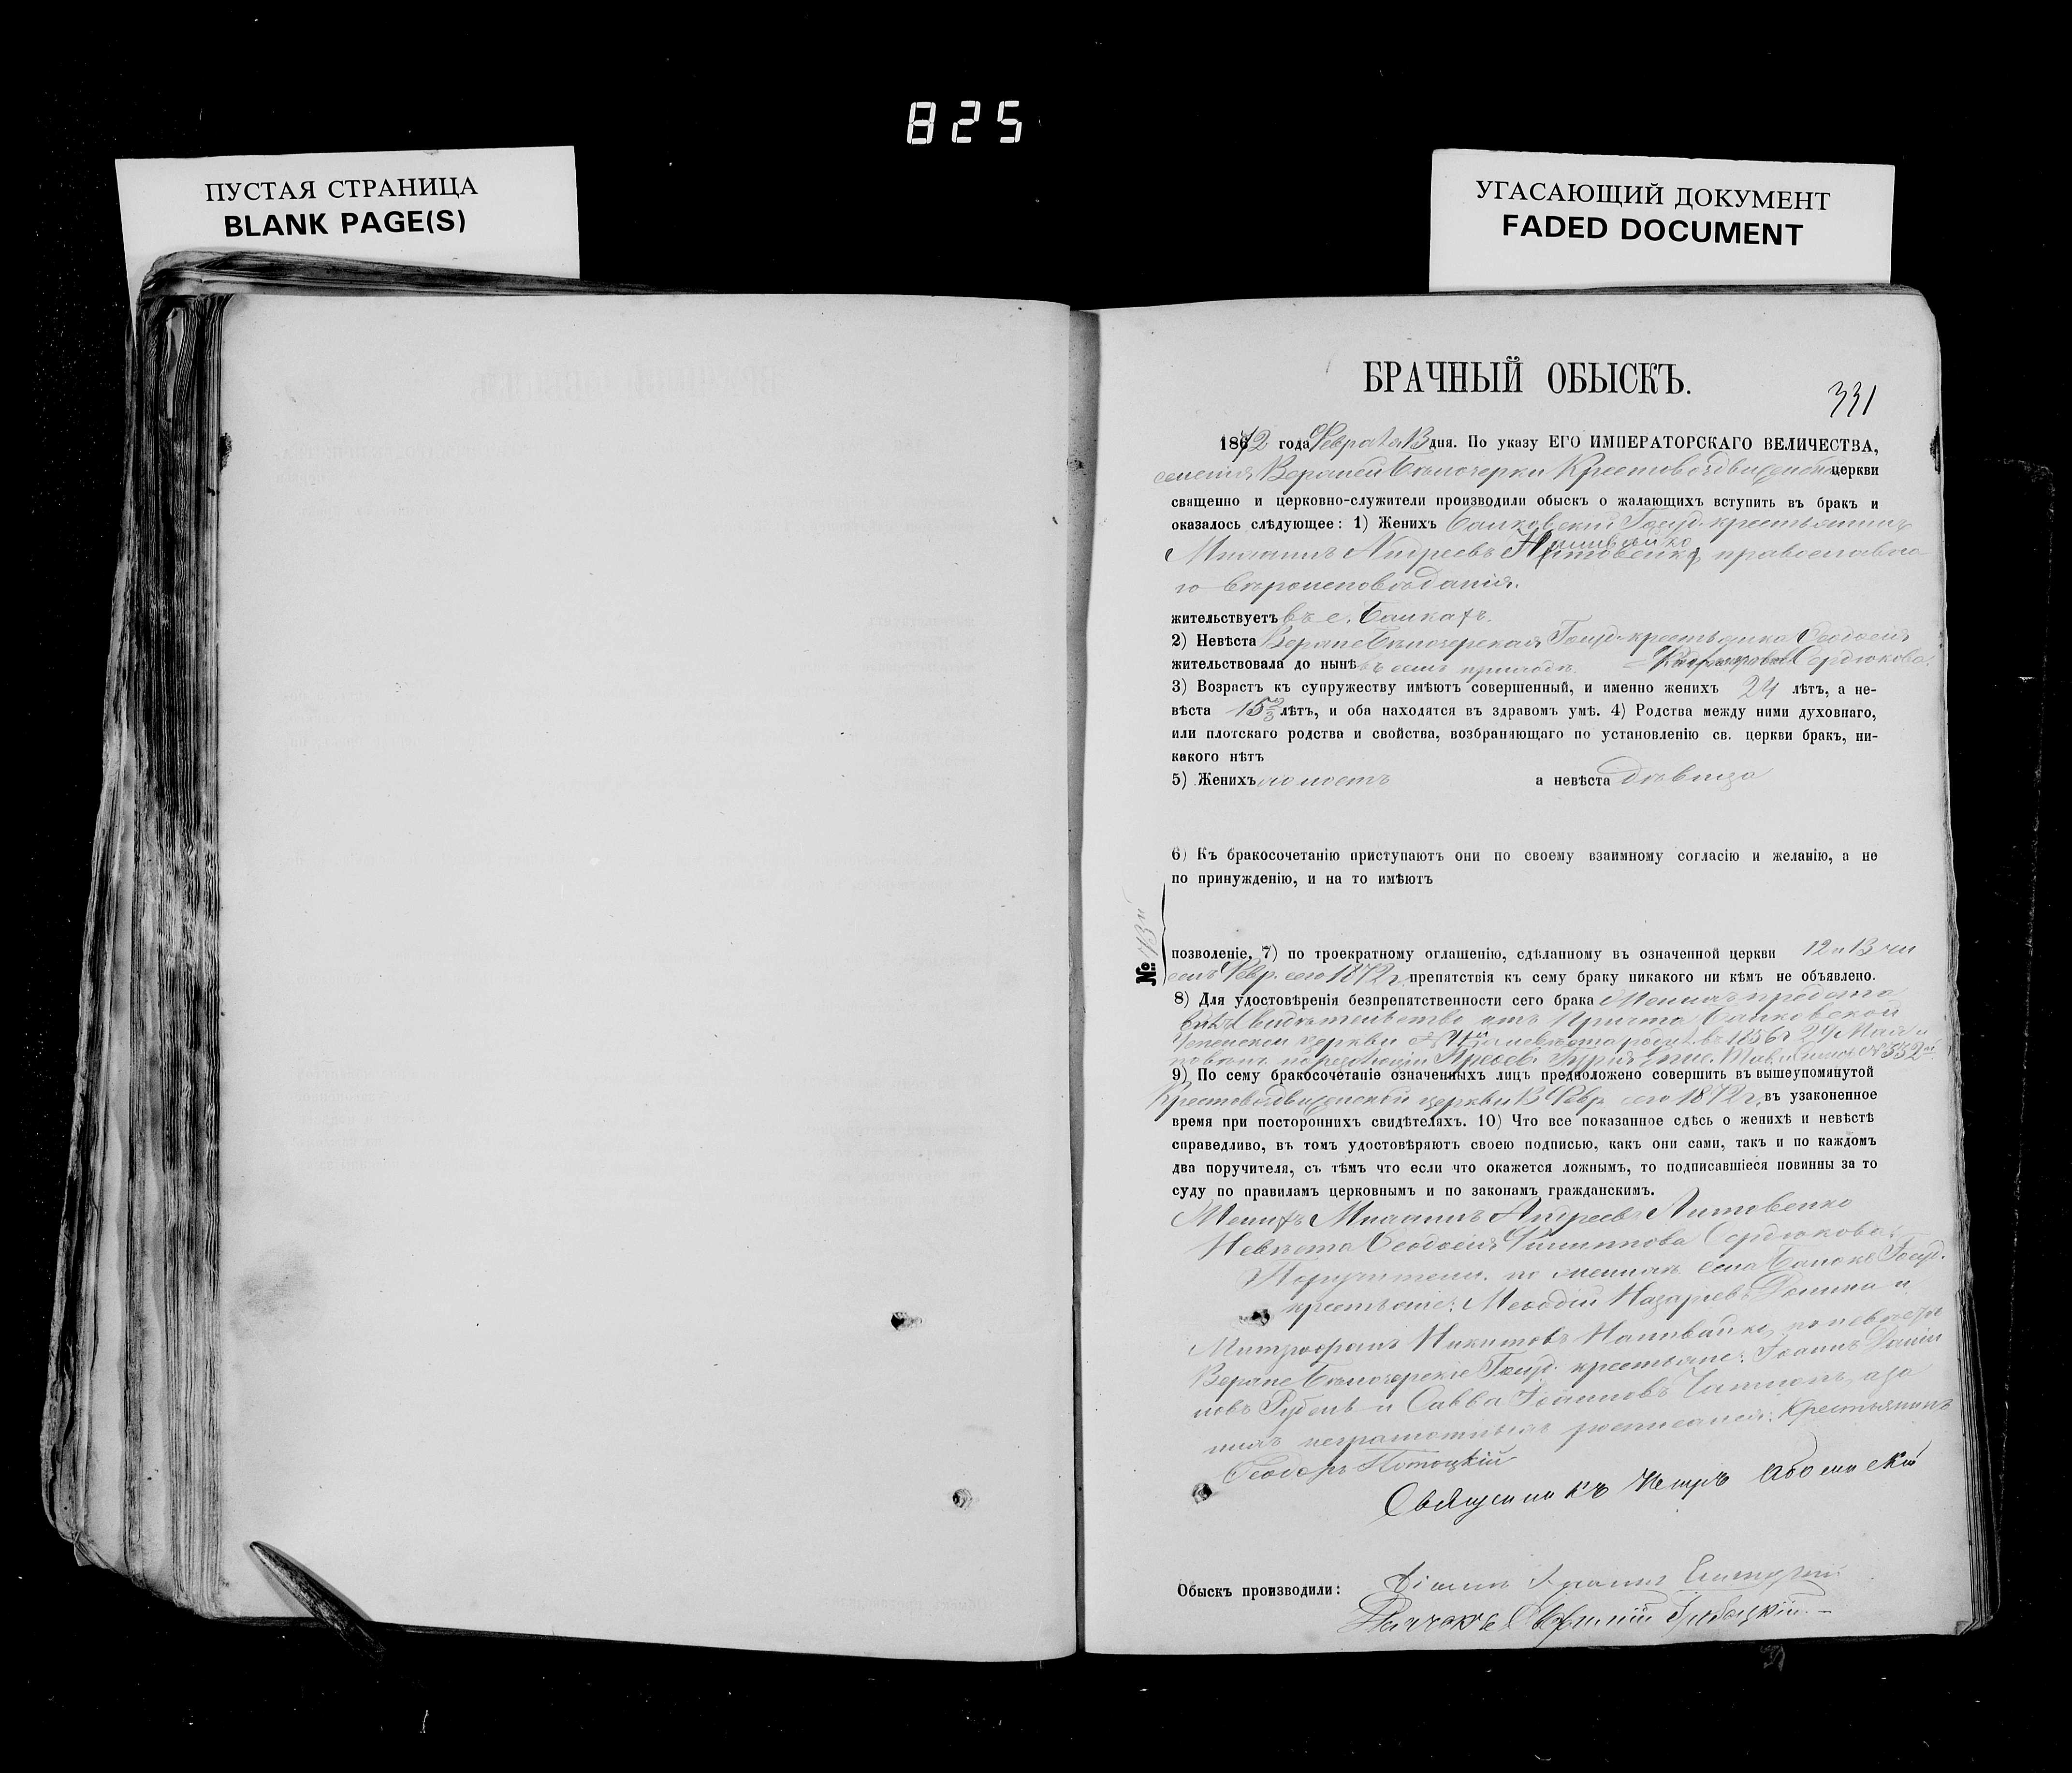 825
ПУСТАЯ СТРАНИЦА
BLANK PAGE(S)
УГАСАЮЩИЙ ДОКУМЕНТ
FADED DOCUMENT
БРАЧНЫЙ ОБЫСКЪ.
331
1872 года Февраля 13 дня. По указу ЕГО ИМПЕРАТОРСКАГО ВЕЛИЧЕСТВА,
селенія Верхней Бѣлозерки Крестовоздвиженской церкви
священно и церковно-служители производили обыскъ о жалающихъ вступить въ бракъ и
оказалось слѣдующее: 1) Женихъ Балковскій Госуд. крестьянинъ
Наливайко
Михаилъ Андреевъ Литовенко, православна
го вѣроисповѣданія.
жительствуетъ въ с. Балкахъ.
2) Невѣста Верхне Бѣлозерская Госуд. крестьянка Ѳеодосія
жительствовала до нынѣ въ семъ приходѣ. Сердюкова.
3) Возрастъ къ супружеству имѣютъ совершенный, и именно женихъ 24 лѣтъ, а не-
вѣста 15 2/3 лѣтъ, и оба находятся въ здравомъ умѣ. 4) Родства между ними духовнаго,
или плотскаго родства и свойства, возбраняющаго по установленію св. церкви бракъ, ни-
какого нѣтъ
5) Женихъ холостъ а невѣста дѣвица
6) Къ бракосочетанію приступаютъ они по своему взаимному согласію и желанію, а не
по принужденію, и на то имѣютъ
№ 13й
позволеніе, 7) по троекратному оглашенію, сдѣланному въ означенной церкви 12 и 13 чи
селъ Февр. сего 1872 г. препятствія къ сему браку никакого ни кѣмъ не объявлено.
8) Для удостовѣренія безпрепятственности сего брака Женихъ предста
вилъ свидѣтельство отъ причта Балковской
Успенской церкви невѣста родил. въ 1856 г. 24 Мая и
по резолюціи Преосв. Гурія Епис. № 552
9) По сему бракосочетаніе означенныхъ лицъ предположено совершить въ вышеупомянутой
Крестовоздвиженской церкви 13 Февр. сего 1872 г. въ узаконенное
время при постороннихъ свидѣтеляхъ. 10) Что все показанное сдѣсь о женихѣ и невѣстѣ
справедливо, въ томъ удостовѣряютъ своею подписью, какъ они сами, такъ и по каждомъ
два поручителя, съ тѣмъ что если что окажется ложнымъ, то подписавшіеся повинны за то
суду по правиламъ церковнымъ и по законамъ гражданскимъ.
Женихъ Михаилъ Андреевъ Литовенко
Невѣста Ѳеодосія Филиппова Сердюкова.
Поручители по женихѣ села Балокъ Госуд.
крестьяне: Меѳодій Назаревъ и
Митрофанъ Никитовъ Наливайко, по невѣстѣ
Верхне Бѣлозерскіе Госуд. крестьяне: Іоаннъ Дани
ловъ и Савва а за
нихъ неграмотныхъ росписался: Крестьянинъ
Ѳеодоръ Потоцкій
Священникъ Петръ
Обыскъ производили: